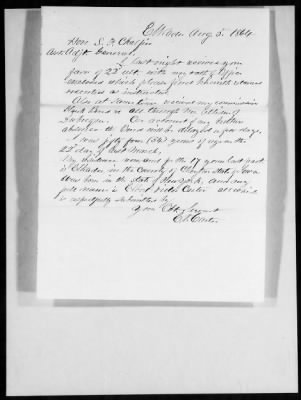 Elkader Aug 5. 1864
Hon. S. F. Chalfin
Act. Asst. General
I last night received your
favor of 23d ult. with my oath of Office
enclosed which please find herewith returned
executed as instructed.
Also at same time received my commission
Bond
On account of my brothers
absence the Bond will be delayed a few days.
I was fifty four (54) years of age on the
22d day of last March,
My residence now and for the 17 years last past
is Elkader, in the County of Clayton State of Iowa
Was born in the State of New York, and my
full name is Carter all which
is respectfully submitted by
Your Obt Servant
E. V. Carter